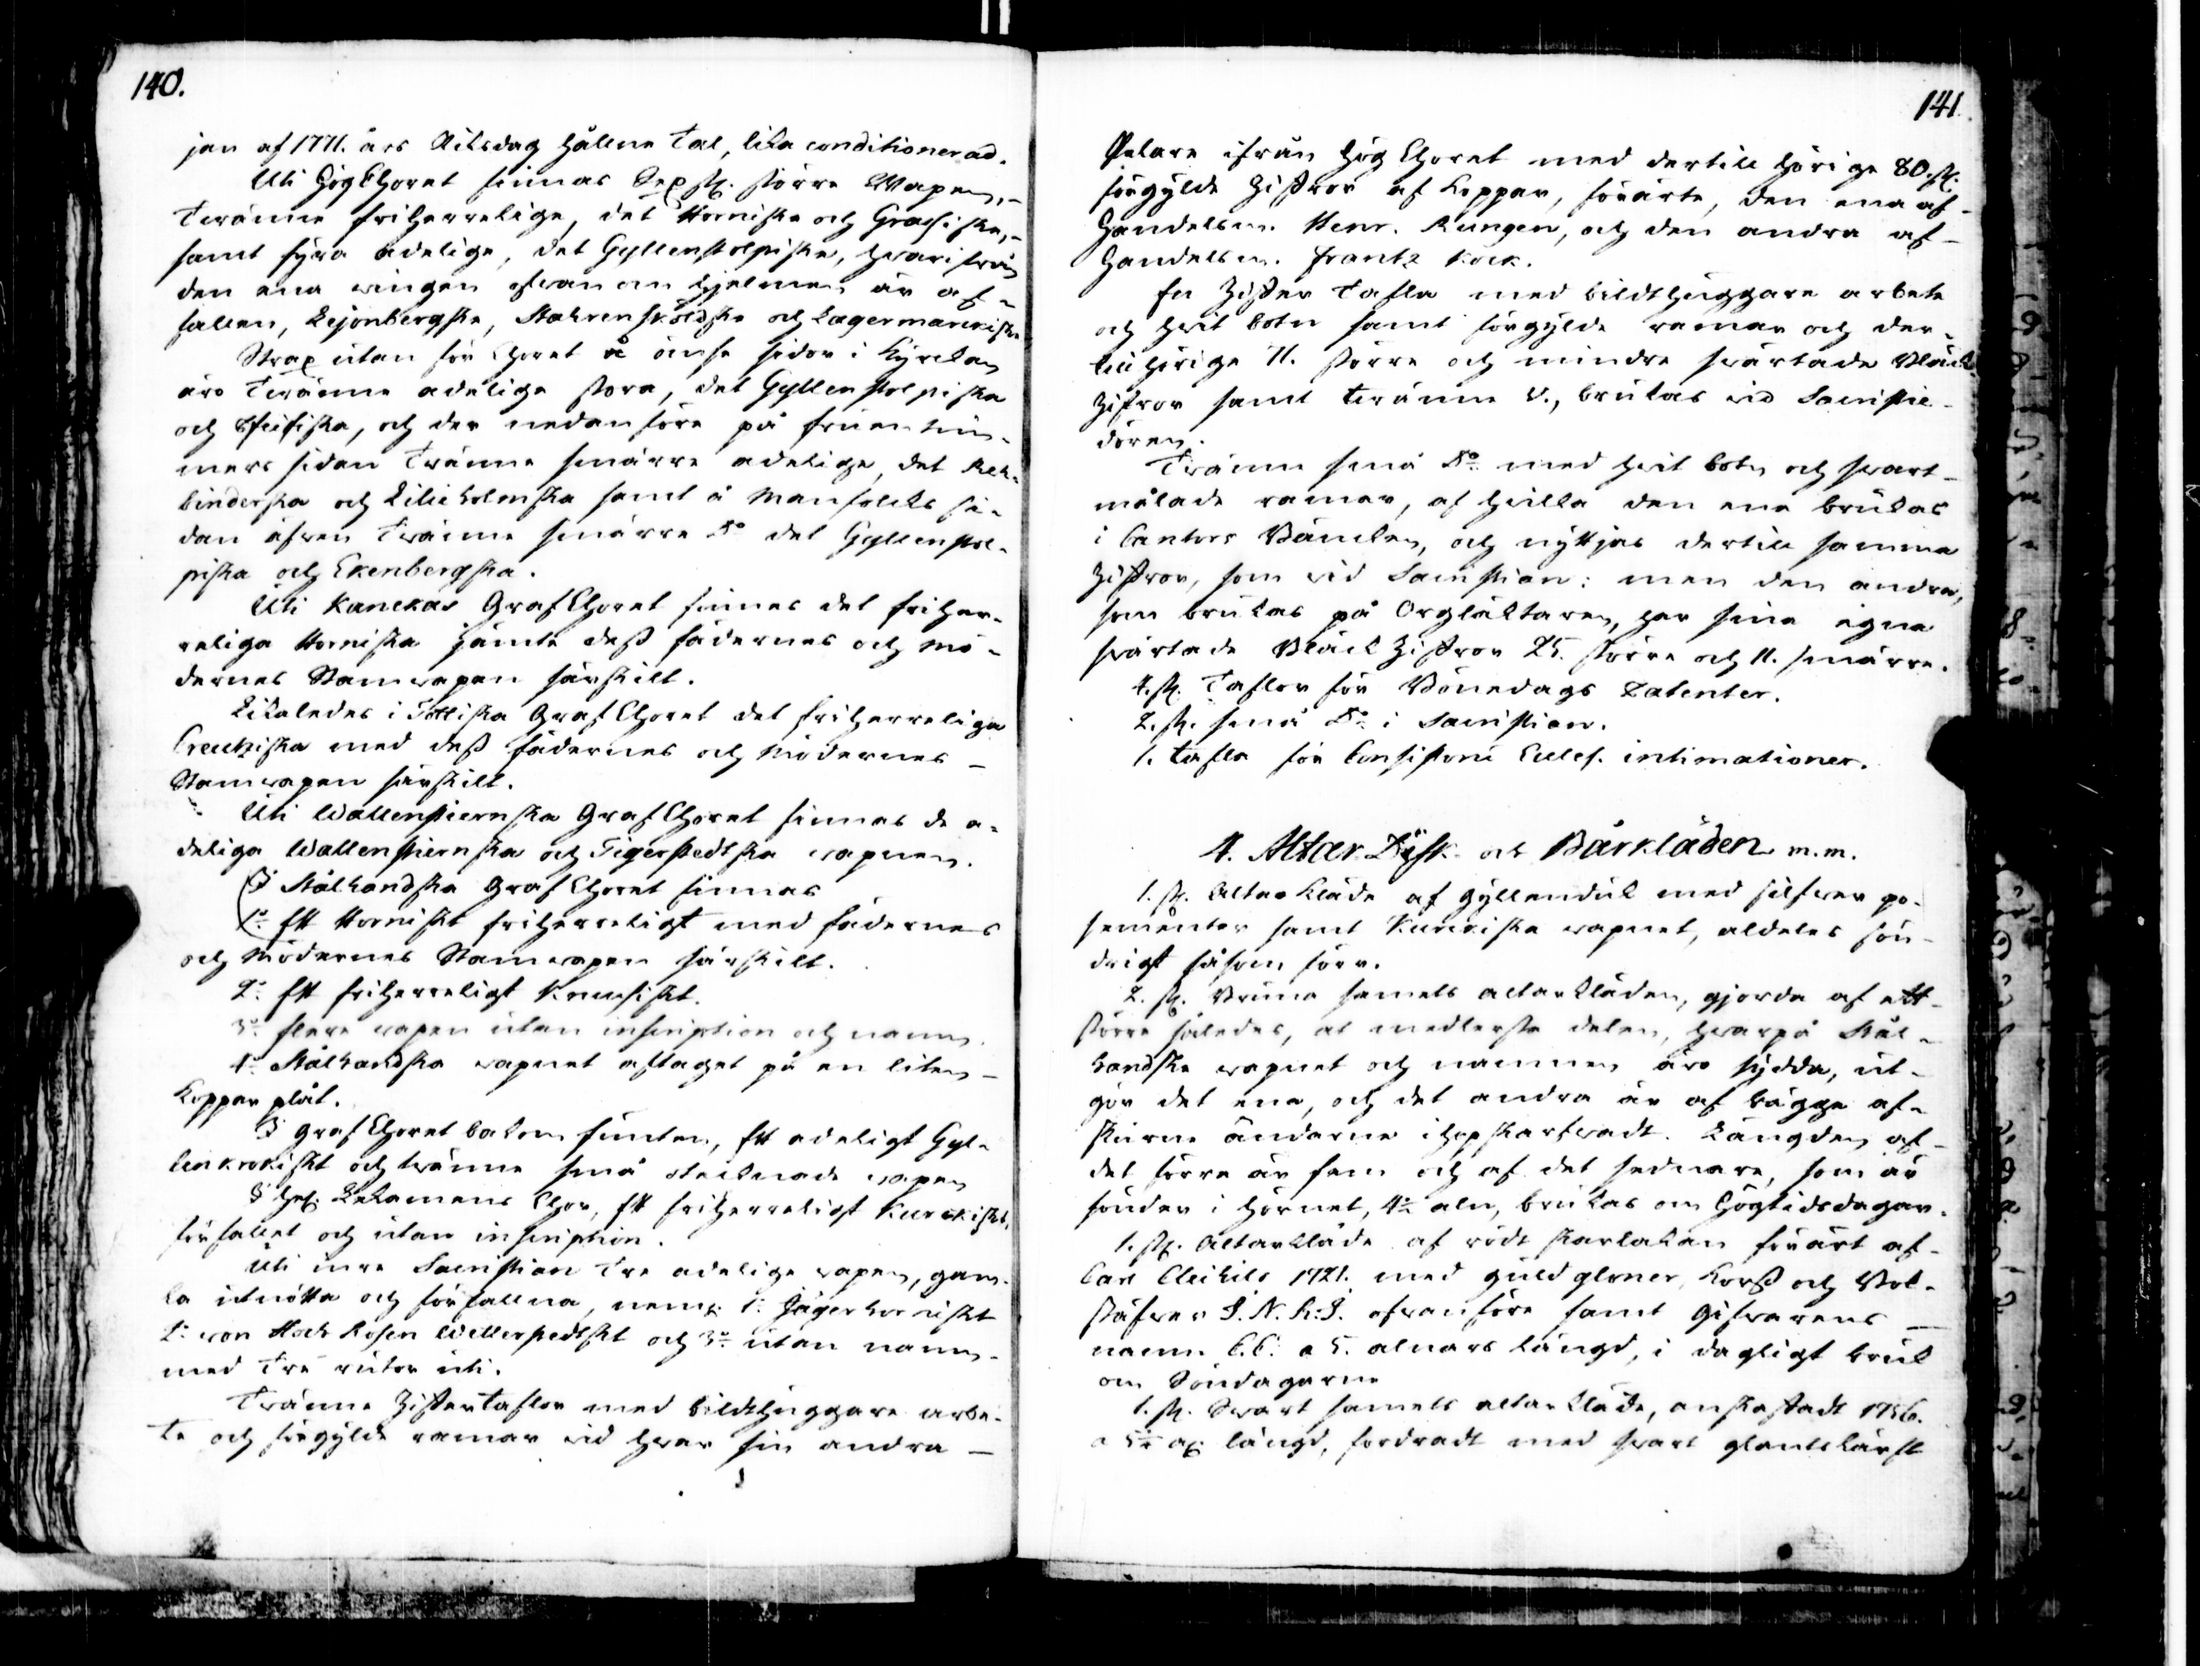 140.
jan af 1771. års Riksdag hållne Tal, lika conditionerad.
Uti Högchoret finnas Sex st. större Wapen,
Twänne friherrelige, det Horniske och Grasiske,
samt fyra adelige, det Gyllenstolpiske, hwarifrån
den ena wingen ofwan om hjelmen är af-
fallen, Lejonbergske, Stahrensköldske och Lagermarckiske
Strax utan för Choret å ömse sidor i Kyrckan
äro Twänne adelige stora, det Gyllenstolpiska
och, och der nedanföre på fruentim-
mers sidan Twänne smärre adelige, det Reh-
binderska och Lilieholmska samt å Manfolcks si-
dan äfwen Twänne smärre Do det Gyllenstol-
piska och Ekenbergska.
Uti Kanckas Graf Choret finnes det friher-
religa Horniska jämte dess fädernes och mö-
dernes Stamwapen särskilt.
Likaledes i Tottiska Graf Choret det friherreliga
Creutziska med dess fädernes och Mödernes
Stamwapen särskilt.
Uti Wallenstiernska Graf Choret finnas de a-
deliga Wallenstiernska och Tigerstedtska wapnen.
I Stålhandska Graf Choret finnas
1o Ett Horniskt friherreligt med fädernes
och Mödernes Stamwapen särskilt.
2o Ett friherreligt Kruusiskt.
3o flere wapen utan inscription och namn.
4o Stålhandska wapnet aftaget på en liten
Koppar plåt.
I Graf Choret bakom funten, Ett adeligt Gyl-
lenkrokiskt och twänne små wapen
I Chor, Ett friherreligt Kurckiskt,
förfallet och utan inscription.
Uti inre Sacristian Tre adelige wapen, gam-
la utnötta och förfallna, neml. 1o Jägerhorniskt
2o von Koch Rosen Wellerstedtskt och 3o utan namn
med Tre rutor uti.
Twänne Ziffertaflor med bildthuggare arbe-
te och förgylde ramar wid hwar sin andra
141.
Pelare ifrån Hög Choret med dertill hörige 80. st.
förgylde Ziffror af Koppar, förärte, den ena af
Handelsm. Henr. Rungen, och den andra af
Handelsm. Frantz Kock.
En Ziffer Tafla med bildthuggare arbete
och hwit botn samt förgylde ramar och der-
till hörige 71. större och mindre swärtade Bläck
Ziffror samt twänne V., brukas wid Sacristie-
dören.
Twänne små Do med hwit botn och swart-
målade ramar, af hwilka den ena brukas
i Cantors Bäncken, och nyttjas dertill samma
Ziffror, som wid Sacristian: men den andra,
som brukas på Orgläktaren, har sina egna
swärtade Bläck Ziffror 25. större och 11. smärre.
4. st. Taflor för Bönedags Placater.
2. st. små Do i Sacristian.
1. tafla för Consistorii Eccles. intimationer.
4. Altar Disk och Bårkläden m.m.
1. st. Altar Kläde af Gyllenduk med silfwer po-
sementer samt Kurckiska wapnet, aldeles sön-
drigt såsom förr.
2. st. Bruna samets altarkläden, gjorda af ett
större således, at medlerste delen, hwarpå Stål-
handske wapnet och namnen äro sydda, ut-
gör det ena, och det andra är af bägge af-
skurne ändarne ihopskarfwadt. Längden af
det förre är fem och af det sednare, som är
sönder i hörnet, 4½ aln, brukas om Högtidsdagar.
1. st. Altarkläde af rödt skarlakan förärt af
Carl 1721. med guld gloner, Korss och Bok-
stäfwer I. N. R. I. ofwanföre samt Gifwarens
namn C.C. a 5. alnars längd, i dagligt bruk
om Söndagarne
1. st. Swart samets altarkläde, anskaffadt 1756.
a 5¼ al. längd, fordradt med swart glantslärft